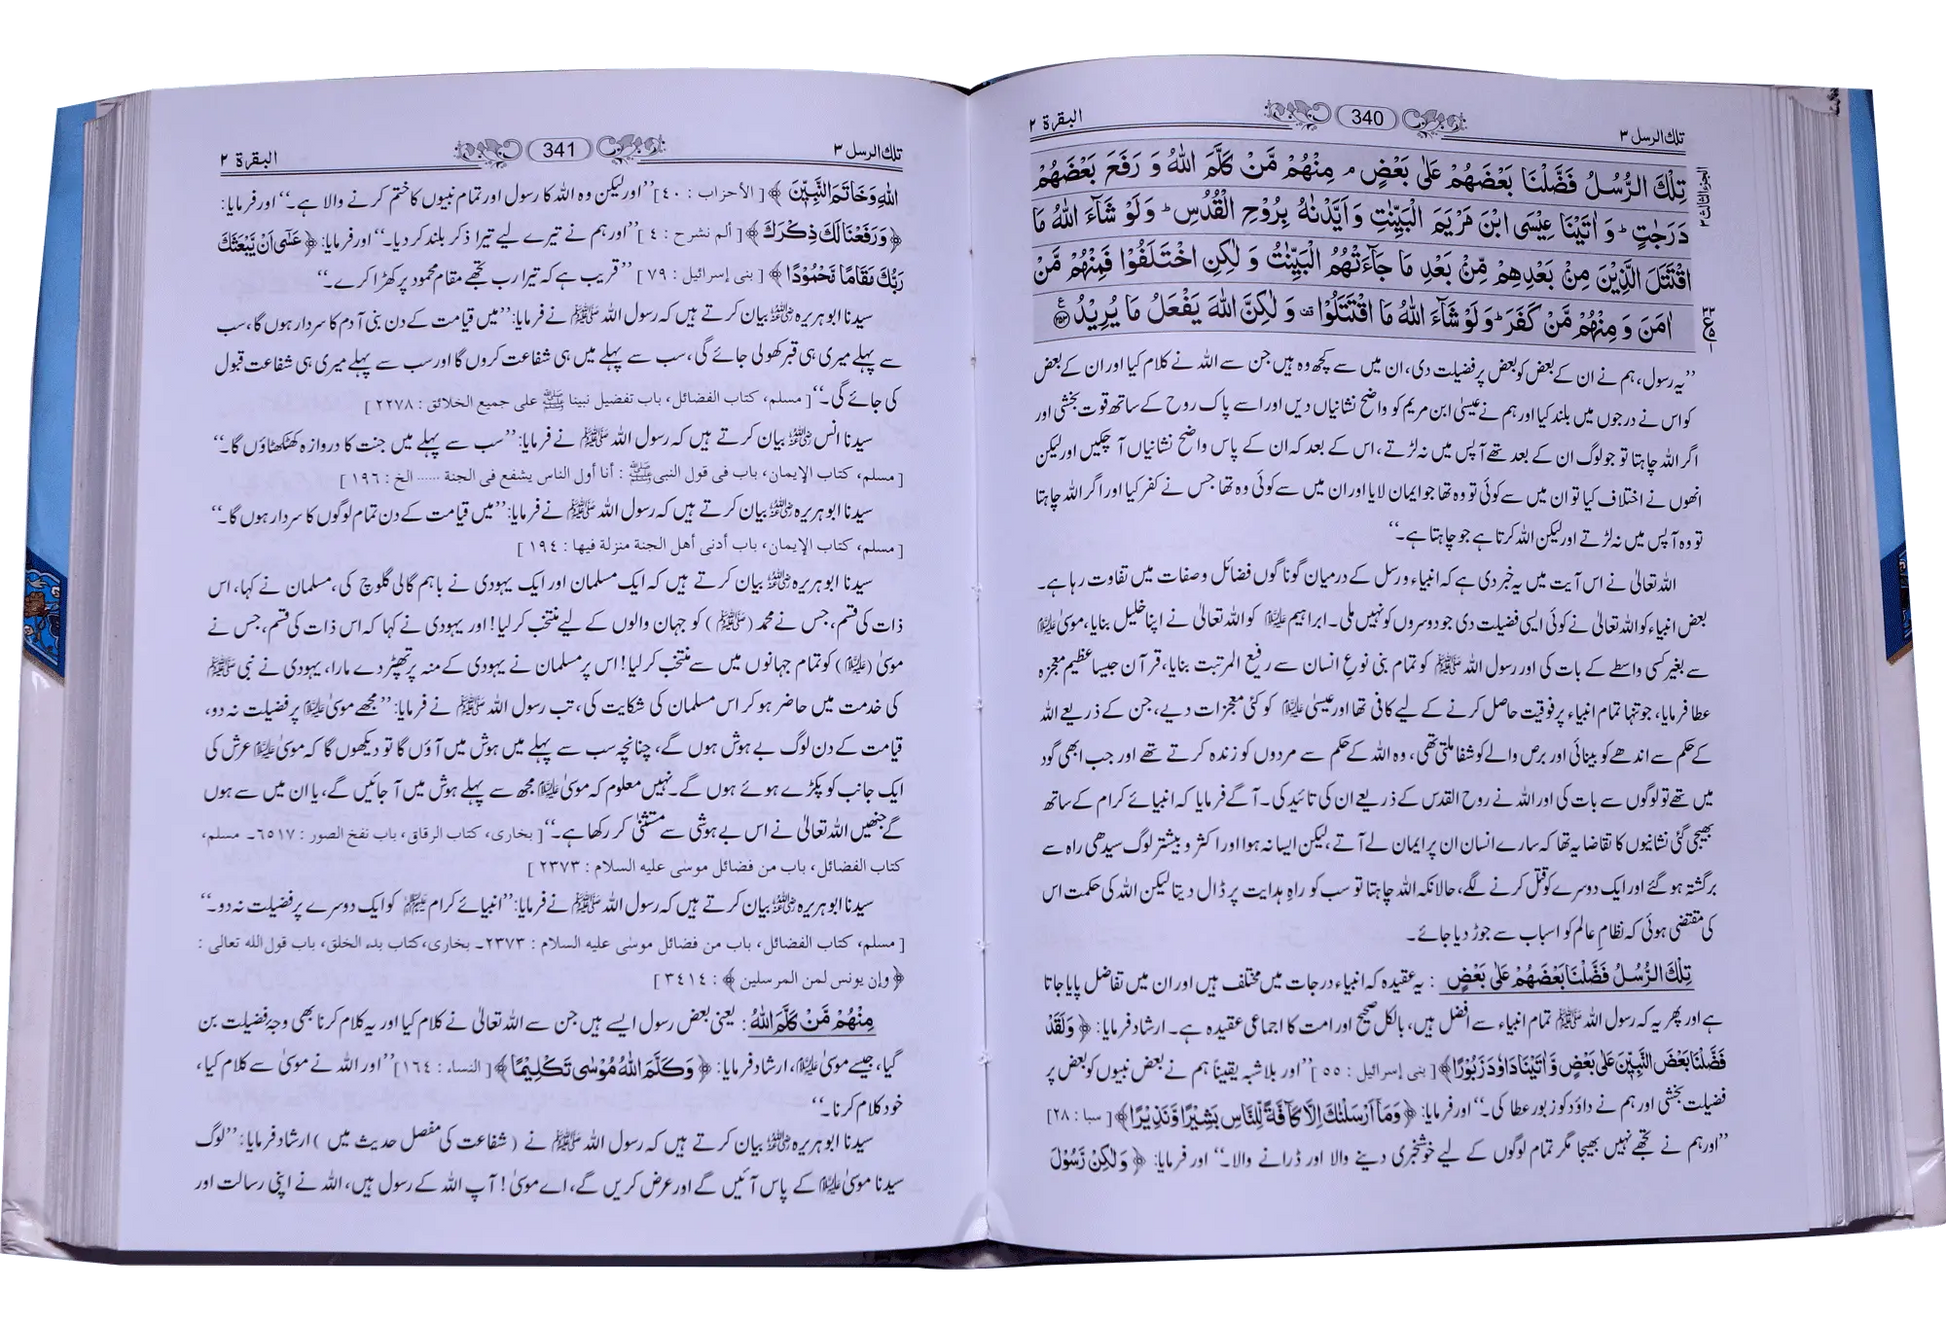 تلك الرسل ۳ 340 البقرة ۲
تِلْكَ الرُّسُلُ فَضَّلْنَا بَعْضَهُمْ عَلٰى بَعْضٍ ۘ مِنْهُمْ مَّنْ كَلَّمَ اللّٰهُ وَ رَفَعَ بَعْضَهُمْ
دَرَجٰتٍ ؕ وَ اٰتَيْنَا عِيْسَى ابْنَ مَرْيَمَ الْبَيِّنٰتِ وَ اَيَّدْنٰهُ بِرُوْحِ الْقُدُسِ ؕ وَ لَوْ شَآءَ اللّٰهُ مَا
اقْتَتَلَ الَّذِيْنَ مِنْۢ بَعْدِهِمْ مِّنْۢ بَعْدِ مَا جَآءَتْهُمُ الْبَيِّنٰتُ وَ لٰكِنِ اخْتَلَفُوْا فَمِنْهُمْ مَّنْ
اٰمَنَ وَ مِنْهُمْ مَّنْ كَفَرَ ؕ وَ لَوْ شَآءَ اللّٰهُ مَا اقْتَتَلُوْا ۫ وَ لٰكِنَّ اللّٰهَ يَفْعَلُ مَا يُرِيْدُ ﴿۲۵۳﴾
”یہ رسول، ہم نے ان کے بعض کو بعض پر فضیلت دی، ان میں سے کچھ وہ ہیں جن سے اللہ نے کلام کیا اور ان کے بعض
کو اس نے درجوں میں بلند کیا اور ہم نے عیسیٰ ابن مریم کو واضح نشانیاں دیں اور اسے پاک روح کے ساتھ قوت بخشی اور
اگر اللہ چاہتا تو جو لوگ ان کے بعد تھے آپس میں نہ لڑتے، اس کے بعد کہ ان کے پاس واضح نشانیاں آ چکیں اور لیکن
انھوں نے اختلاف کیا تو ان میں سے کوئی تو وہ تھا جو ایمان لایا اور ان میں سے کوئی وہ تھا جس نے کفر کیا اور اگر اللہ چاہتا
تو وہ آپس میں نہ لڑتے اور لیکن اللہ کرتا ہے جو چاہتا ہے۔“
اللہ تعالیٰ نے اس آیت میں یہ خبر دی ہے کہ انبیاء و رسل کے درمیان گوناگوں فضائل و صفات میں تفاوت رہا ہے۔
بعض انبیاء کو اللہ تعالیٰ نے کوئی ایسی فضیلت دی جو دوسروں کو نہیں ملی۔ ابراہیم علیہ السلام کو اللہ تعالیٰ نے اپنا خلیل بنایا، موسیٰ علیہ السلام
سے بغیر کسی واسطے کے بات کی اور رسول اللہ ﷺ کو تمام بنی نوعِ انسان سے رفیع المرتبت بنایا، قرآن جیسا عظیم معجزہ
عطا فرمایا، جو تنہا تمام انبیاء پر فوقیت حاصل کرنے کے لیے کافی تھا اور عیسیٰ علیہ السلام کو کئی معجزات دیے، جن کے ذریعے اللہ
کے حکم سے اندھے کو بینائی اور برص والے کو شفا ملتی تھی، وہ اللہ کے حکم سے مردوں کو زندہ کرتے تھے اور جب ابھی گود
میں تھے تو لوگوں سے بات کی اور اللہ نے روح القدس کے ذریعے ان کی تائید کی۔ آگے فرمایا کہ انبیائے کرام کے ساتھ
بھیجی گئی نشانیوں کا تقاضا یہ تھا کہ سارے انسان ان پر ایمان لے آتے، لیکن ایسا نہ ہوا اور اکثر و بیشتر لوگ سیدھی راہ سے
برگشتہ ہو گئے اور ایک دوسرے کو قتل کرنے لگے، حالانکہ اللہ چاہتا تو سب کو راہِ ہدایت پر ڈال دیتا لیکن اللہ کی حکمت اس
کی مقتضی ہوئی کہ نظامِ عالم کو اسباب سے جوڑ دیا جائے۔
تِلْكَ الرُّسُلُ فَضَّلْنَا بَعْضَهُمْ عَلٰى بَعْضٍ : یہ عقیدہ کہ انبیاء درجات میں مختلف ہیں اور ان میں تفاضل پایا جاتا
ہے اور پھر یہ کہ رسول اللہ ﷺ تمام انبیاء سے افضل ہیں، بالکل صحیح اور امت کا اجماعی عقیدہ ہے۔ ارشاد فرمایا: ﴿ وَ لَقَدْ
فَضَّلْنَا بَعْضَ النَّبِيّٖنَ عَلٰى بَعْضٍ وَّ اٰتَيْنَا دَاوٗدَ زَبُوْرًا ﴾ [ بنی إسرائیل : ٥٥ ] ”اور بلاشبہ یقیناً ہم نے بعض نبیوں کو بعض پر
فضیلت بخشی اور ہم نے داؤد کو زبور عطا کی۔“ اور فرمایا: ﴿ وَ مَاۤ اَرْسَلْنٰكَ اِلَّا كَآفَّةً لِّلنَّاسِ بَشِيْرًا وَّ نَذِيْرًا ﴾ [ سبا : ٢٨ ]
”اور ہم نے تجھے نہیں بھیجا مگر تمام لوگوں کے لیے خوشخبری دینے والا اور ڈرانے والا۔“ اور فرمایا: ﴿ وَ لٰكِنْ رَّسُوْلَ
تلك الرسل ۳ 341 البقرة ۲
اللّٰهِ وَ خَاتَمَ النَّبِيّٖنَ ﴾ [ الأحزاب : ٤٠ ] ”اور لیکن وہ اللہ کا رسول اور تمام نبیوں کا ختم کرنے والا ہے۔“ اور فرمایا:
﴿ وَ رَفَعْنَا لَكَ ذِكْرَكَ ﴾ [ ألم نشرح : ٤ ] ”اور ہم نے تیرے لیے تیرا ذکر بلند کر دیا۔“ اور فرمایا: ﴿ عَسٰۤى اَنْ يَّبْعَثَكَ
رَبُّكَ مَقَامًا مَّحْمُوْدًا ﴾ [ بنی إسرائیل : ٧٩ ] ”قریب ہے کہ تیرا رب تجھے مقام محمود پر کھڑا کرے۔“
سیدنا ابو ہریرہ رضی اللہ عنہ بیان کرتے ہیں کہ رسول اللہ ﷺ نے فرمایا: ”میں قیامت کے دن بنی آدم کا سردار ہوں گا، سب
سے پہلے میری ہی قبر کھولی جائے گی، سب سے پہلے میں ہی شفاعت کروں گا اور سب سے پہلے میری ہی شفاعت قبول
کی جائے گی۔“ [ مسلم، کتاب الفضائل، باب تفضیل نبینا ﷺ علی جمیع الخلائق : ٢٢٧٨ ]
سیدنا انس رضی اللہ عنہ بیان کرتے ہیں کہ رسول اللہ ﷺ نے فرمایا: ”سب سے پہلے میں جنت کا دروازہ کھٹکھٹاؤں گا۔“
[ مسلم، کتاب الإیمان، باب فی قول النبی ﷺ : أنا أول الناس یشفع فی الجنة ...... الخ : ١٩٦ ]
سیدنا ابو ہریرہ رضی اللہ عنہ بیان کرتے ہیں کہ رسول اللہ ﷺ نے فرمایا: ”میں قیامت کے دن تمام لوگوں کا سردار ہوں گا۔“
[ مسلم، کتاب الإیمان، باب أدنی أهل الجنة منزلة فیها : ١٩٤ ]
سیدنا ابو ہریرہ رضی اللہ عنہ بیان کرتے ہیں کہ ایک مسلمان اور ایک یہودی نے باہم گالی گلوچ کی، مسلمان نے کہا، اس
ذات کی قسم، جس نے محمد (ﷺ) کو جہان والوں کے لیے منتخب کر لیا! اور یہودی نے کہا کہ اس ذات کی قسم، جس نے
موسیٰ (علیہ السلام) کو تمام جہانوں میں سے منتخب کر لیا! اس پر مسلمان نے یہودی کے منہ پر تھپڑ دے مارا، یہودی نے نبی ﷺ
کی خدمت میں حاضر ہو کر اس مسلمان کی شکایت کی، تب رسول اللہ ﷺ نے فرمایا: ”مجھے موسیٰ علیہ السلام پر فضیلت نہ دو،
قیامت کے دن لوگ بے ہوش ہوں گے، چنانچہ سب سے پہلے میں ہوش میں آؤں گا تو دیکھوں گا کہ موسیٰ علیہ السلام عرش کی
ایک جانب کو پکڑے ہوئے ہوں گے۔ نہیں معلوم کہ موسیٰ علیہ السلام مجھ سے پہلے ہوش میں آ جائیں گے، یا ان میں سے ہوں
گے جنھیں اللہ تعالیٰ نے اس بے ہوشی سے مستثنیٰ کر رکھا ہے۔“ [ بخاری، کتاب الرقاق، باب نفخ الصور : ٦٥١٧۔ مسلم،
کتاب الفضائل، باب من فضائل موسٰی علیه السلام : ٢٣٧٣ ]
سیدنا ابو ہریرہ رضی اللہ عنہ بیان کرتے ہیں کہ رسول اللہ ﷺ نے فرمایا: ”انبیائے کرام علیہم السلام کو ایک دوسرے پر فضیلت نہ دو۔“
[ مسلم، کتاب الفضائل، باب من فضائل موسٰی علیه السلام : ٢٣٧٣۔ بخاری، کتاب بدء الخلق، باب قول الله تعالی :
﴿ وإن یونس لمن المرسلین ﴾ : ٣٤١٤ ]
مِنْهُمْ مَّنْ كَلَّمَ اللّٰهُ : یعنی بعض رسول ایسے ہیں جن سے اللہ تعالیٰ نے کلام کیا اور یہ کلام کرنا بھی وجہ فضیلت بن
گیا، جیسے موسیٰ علیہ السلام، ارشاد فرمایا: ﴿ وَ كَلَّمَ اللّٰهُ مُوْسٰى تَكْلِيْمًا ﴾ [ النساء : ١٦٤ ] ”اور اللہ نے موسیٰ سے کلام کیا،
خود کلام کرنا۔“
سیدنا ابو ہریرہ رضی اللہ عنہ بیان کرتے ہیں کہ رسول اللہ ﷺ نے (شفاعت کی مفصل حدیث میں) ارشاد فرمایا: ”لوگ
سیدنا موسیٰ علیہ السلام کے پاس آئیں گے اور عرض کریں گے، اے موسیٰ! آپ اللہ کے رسول ہیں، اللہ نے اپنی رسالت اور